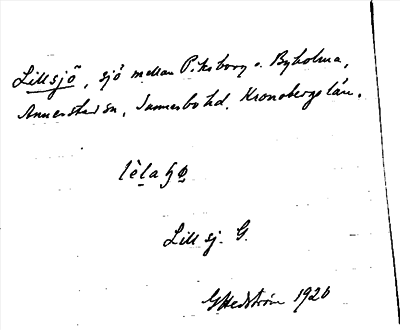 Lillsjö, sjö mellan Piksborg o. Byholma,
Annerstad sn, Sunnerbo hd, Kronobergs län.
Lill sj. G.
GHedström 1920